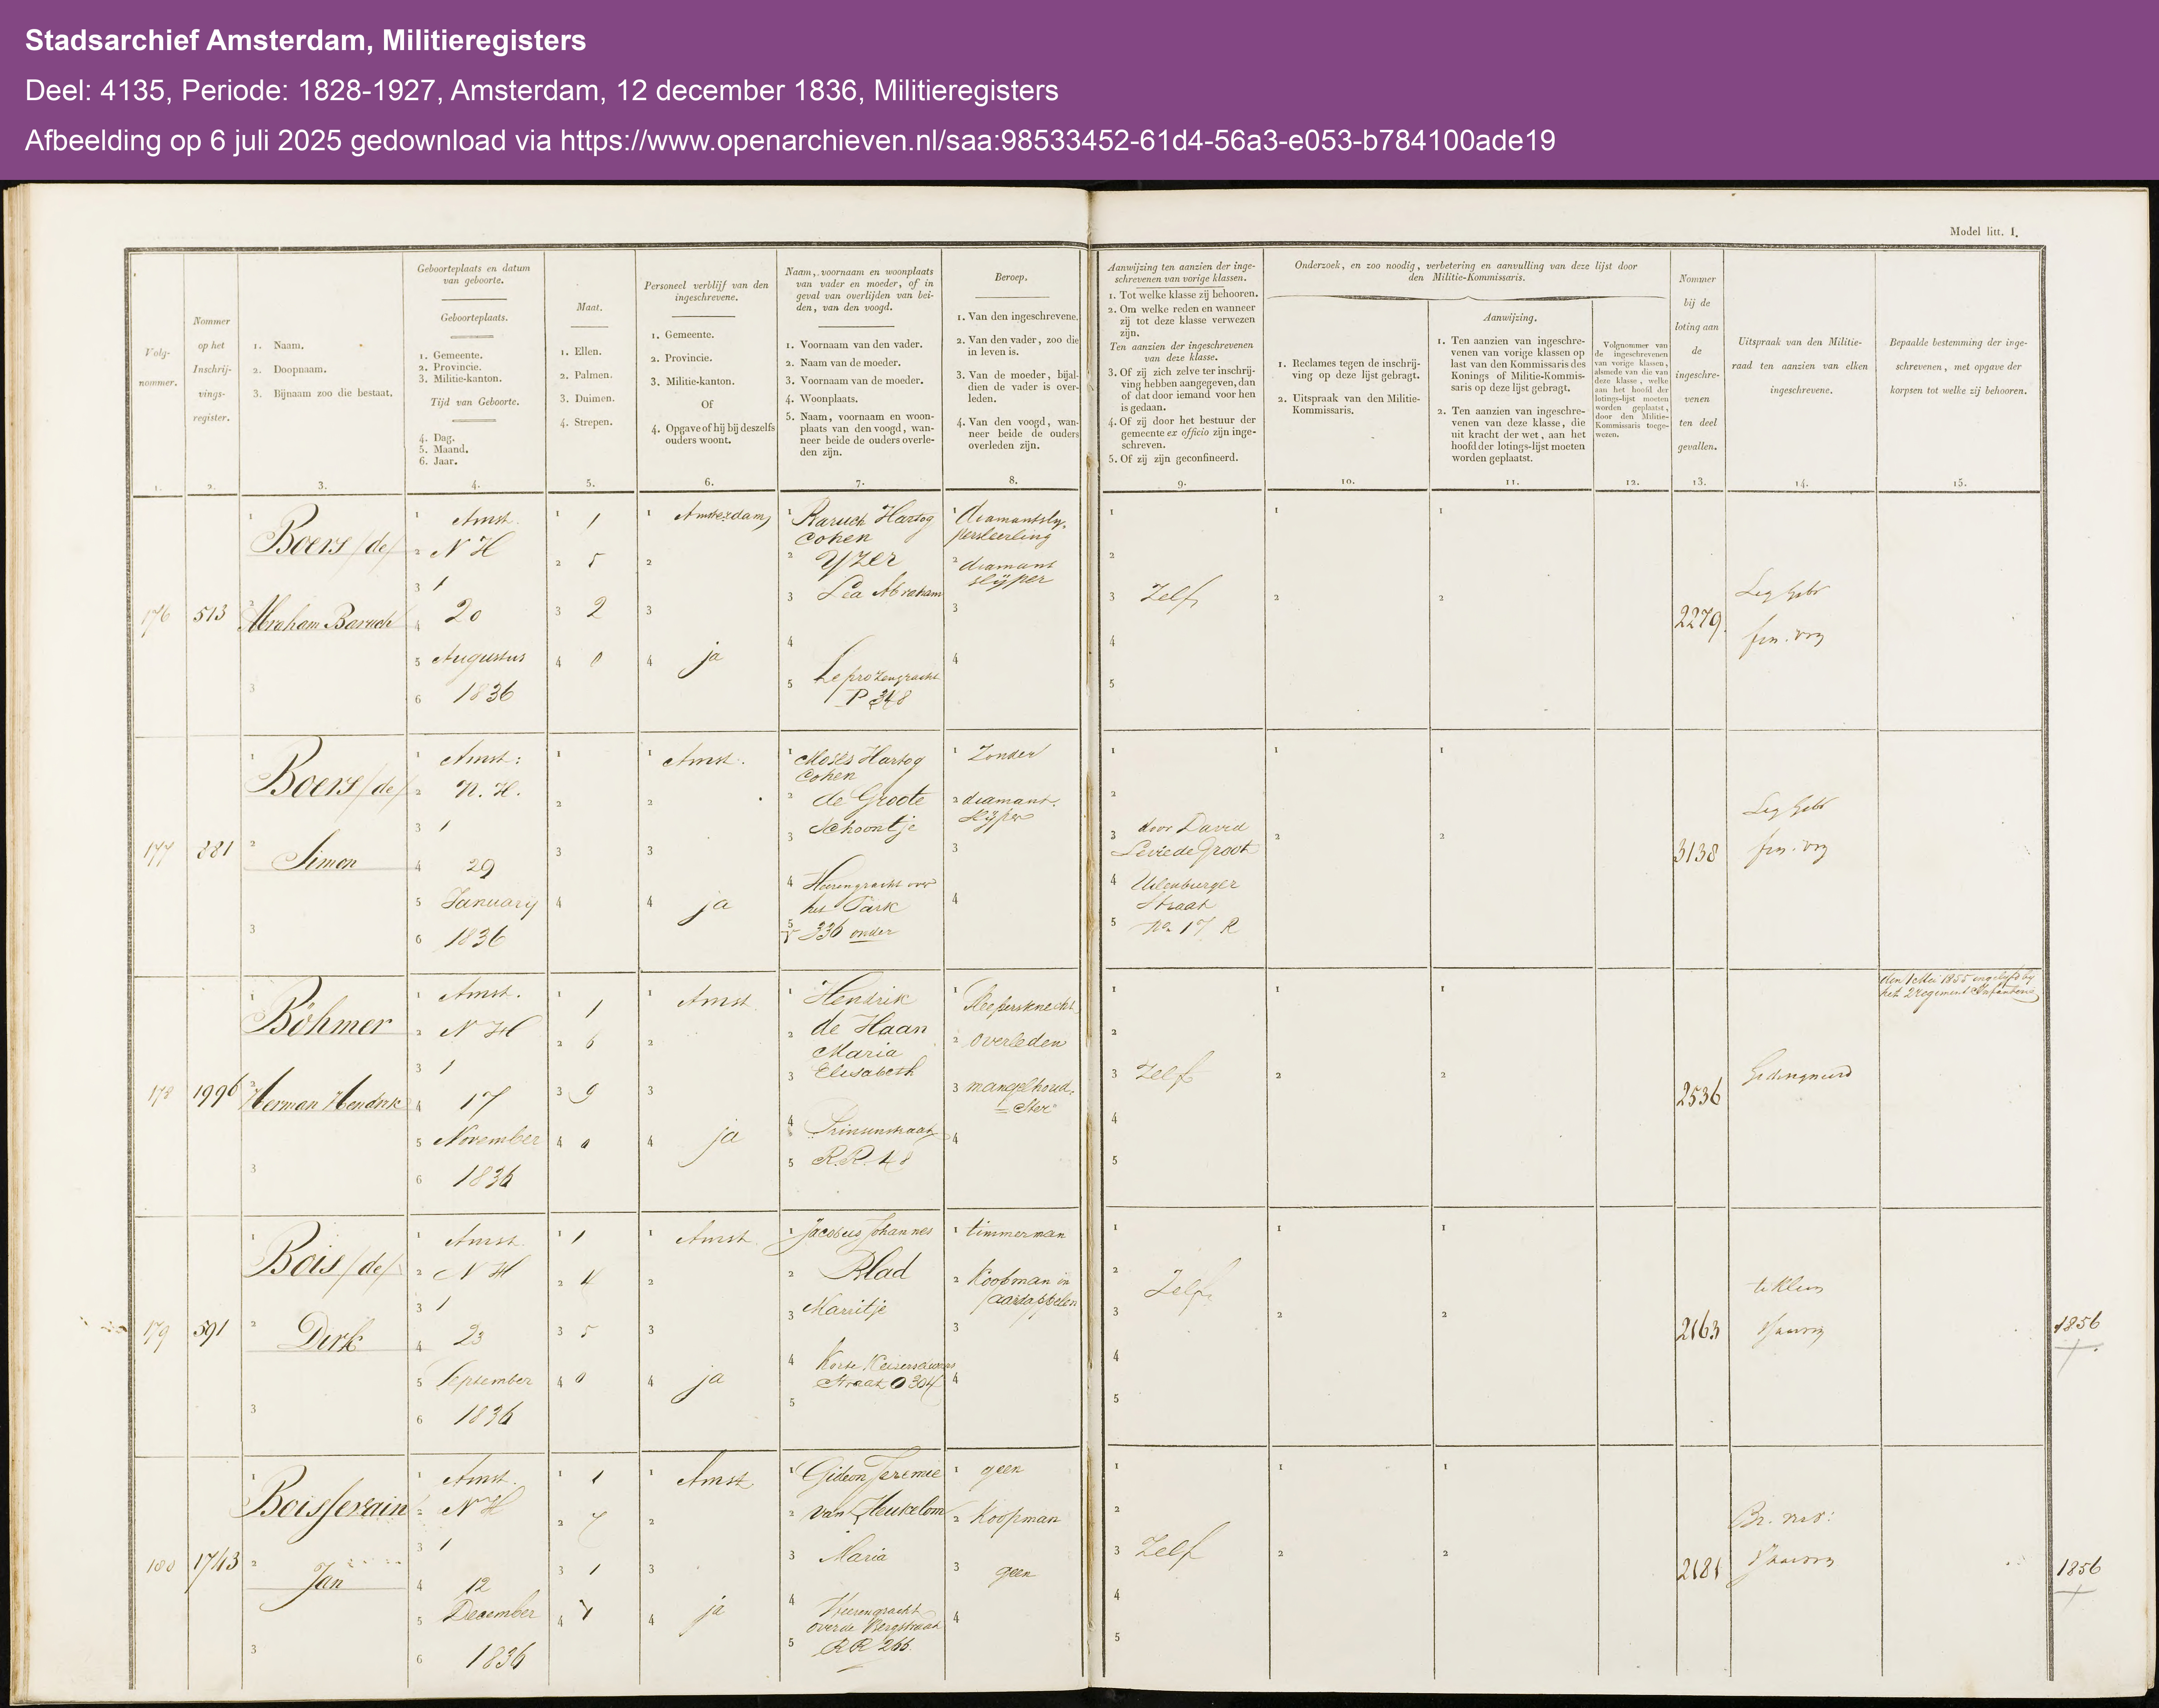 Stadsarchief Amsterdam, Militieregisters
Deel: 4135, Periode: 1828-1927, Amsterdam, 12 december 1836, Militieregisters
Afbeelding op 6 juli 2025 gedownload via https://www.openarchieven.nl/saa:98533452-61d4-56a3-e053-b784100ade19
Model litt. I.
Volg-
nommer.
1.
Nommer
op het
Inschrij-
vings-
register.
2.
1. Naam.
2. Doopnaam.
3. Bijnaam zoo die bestaat.
3.
Geboorteplaats en datum
van geboorte.
Geboorteplaats.
1. Gemeente.
2. Provincie.
3. Militie-kanton.
Tijd van Geboorte.
4. Dag.
5. Maand.
6. Jaar.
4.
Maat.
1. Ellen.
2. Palmen.
3. Duimen.
4. Strepen.
5.
Personeel verblijf van den
ingeschrevene.
1. Gemeente.
2. Provincie.
3. Militie-kanton.
Of
4. Opgave of hij bij deszelfs
ouders woont.
6.
Naam, voornaam en woonplaats
van vader en moeder, of in
geval van overlijden van bei-
den, van den voogd.
1. Voornaam van den vader.
2. Naam van de moeder.
3. Voornaam van de moeder.
4. Woonplaats.
5. Naam, voornaam en woon-
plaats van den voogd, wan-
neer beide de ouders overle-
den zijn.
7.
Beroep.
1. Van den ingeschrevene.
2. Van den vader, zoo die
in leven is.
3. Van de moeder, bijal-
dien de vader is over-
leden.
4. Van den voogd, wan-
neer beide de ouders
overleden zijn.
8.
Aanwijzing ten aanzien der inge-
schrevenen van vorige klassen.
1. Tot welke klasse zij behooren.
2. Om welke reden en wanneer
zij tot deze klasse verwezen
zijn.
Ten aanzien der ingeschrevenen
van deze klasse.
3. Of zij zich zelve ter inschrij-
ving hebben aangegeven, dan
of dat door iemand voor hen
is gedaan.
4. Of zij door het bestuur der
gemeente ex officio zijn inge-
schreven.
5. Of zij zijn geconfineerd.
9.
Onderzoek, en zoo noodig, verbetering en aanvulling van deze lijst door
den Militie-Kommissaris.
1. Reclames tegen de inschrij-
ving op deze lijst gebragt.
2. Uitspraak van den Militie-
Kommissaris.
10.
Aanwijzing.
1. Ten aanzien van ingeschre-
venen van vorige klassen op
last van den Kommissaris des
Konings of Militie-Kommis-
saris op deze lijst gebragt.
2. Ten aanzien van ingeschre-
venen van deze klasse, die
uit kracht der wet, aan het
hoofd der lotings-lijst moeten
worden geplaatst.
11.
Volgnommer van
de ingeschrevenen
van vorige klassen,
alsmede van die van
deze klasse, welke
aan het hoofd der
lotings-lijst moeten
worden geplaatst,
door den Militie-
Kommissaris toege-
wezen.
12.
Nommer
bij de
loting aan
de
ingeschre-
venen
ten deel
gevallen.
13.
Uitspraak van den Militie-
raad ten aanzien van elken
ingeschrevene.
14.
Bepaalde bestemming der inge-
schrevenen, met opgave der
korpsen tot welke zij behooren.
15.
176
513
1 Boers /de/
2 Abraham Baruch
3
1 Amst.
2 N H
3 1
4 20
5 Augustus
6 1836
1 1
2 5
3 2
4 0
1 Amsterdam
2
3
4 ja
1 Baruch Hartog
Cohen
2 Yzer
3 Lea Abraham
4
Leprozengracht
5 P 348
1 diamantsly-
persleerling
2 diamant
slijper
3
4
1
2
3 Zelf
4
5
1
2
1
2
2279
177
281
1 Boers /de/
2 Simon
3
1 Amst:
2 N. H.
3 1
4 29
5 January
6 1836
1
2
3
4
1 Amst.
2
3
4 ja
1 Moses Hartog
Cohen
2 de Groote
3 Schoontje
4 Heerengracht over
het Park
5 336 onder
1 Zonder
2 diamant.
slijper
3
4
1
2
3 door David
Levie de Groot
4 Uilenburger
Straat
5 No 17 R
1
2
1
2
3138
178
1996
1 Böhmer
2 Herman Hendrik
3
1 Amst.
2 N H
3 1
4 17
5 November
6 1836
1 1
2 6
3 9
4 0
1 Amst
2
3
4 ja
1 Hendrik
2 de Haan
Maria
3 Elisabeth
4 Prinsenstraat
5 R.R. 48
1 Sleepersknecht
2 overleden
3 mangelhoud-
ster
4
1
2
3 Zelf
4
5
1
2
1
2
2536
den 1 Mei 1855 ingelyfd by
het 2 regiment Infanterie
179
591
1 Bois /de/
2 Dirk
3
1 Amst.
2 N H
3 1
4 23
5 September
6 1836
1 1
2 4
3 5
4 0
1 Amst.
2
3
4 ja
1 Jacobus Johannes
2 Blad
3 Marritje
4 Korte Keisers
Straat O 304
5
1 timmerman
2 Koopman in
aardappelen
3
4
1
2 Zelf
3
4
5
1
2
1
2
2163
te klein
1856
180
1743
1 Boissevain
2 Jan
3
1 Amst.
2 N H
3 1
4 12
5 December
6 1836
1 1
2 7
3 1
4
1 Amst
2
3
4 ja
1 Gideon Jeremie
2 van Heukelom
3 Maria
4 Heerengracht
over de Bergstraat
5 RR 266
1 geen
2 Koopman
3 geen
4
1
2
3 Zelf
4
5
1
2
1
2
2181
1856